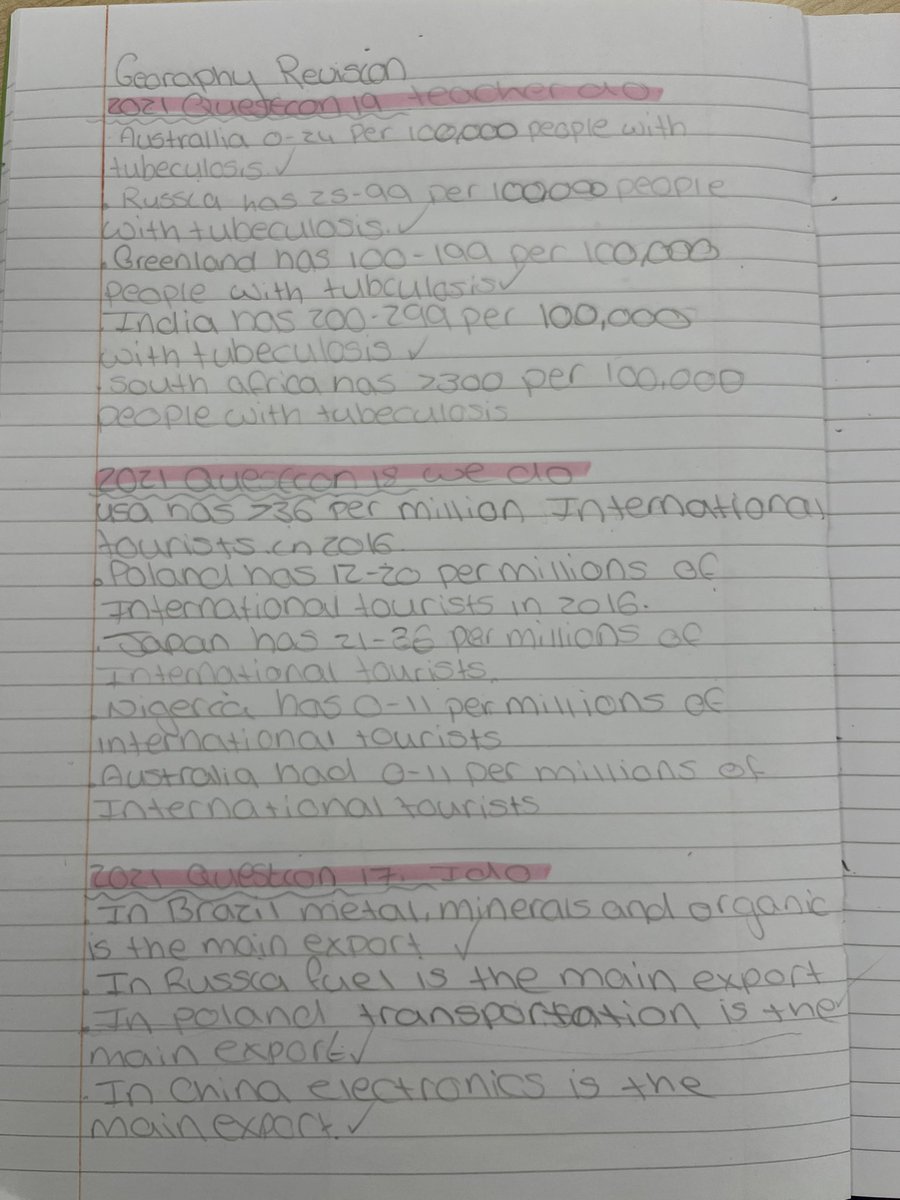 Georaphy Revision
2021 Question 19 teacher do
Australlia 0-24 per 100,000 people with
tubeculosis ✓
. Russia has 25-99 per 100000 people
with tubeculosis. ✓
. Greenland has 100-199 per 100,000
people with tubculosis ✓
. India has 200-299 per 100,000
with tubeculosis ✓
. South africa has >300 per 100,000
people with tubeculosis
2021 Question 18 we do
usa has >36 per million International
tourists in 2016.
. Poland has 12-20 per millions of
International tourists in 2016.
. Japan has 21-36 per millions of
International tourists.
. Nigeria has 0-11 per millions of
international tourists
. Australia had 0-11 per millions of
International tourists
2021 Question 17. I do
. In Brazil metal, minerals and organic
is the main export ✓
. In Russia fuel is the main export
. In poland transportation is the
main export ✓
. In China electronics is the
main export. ✓